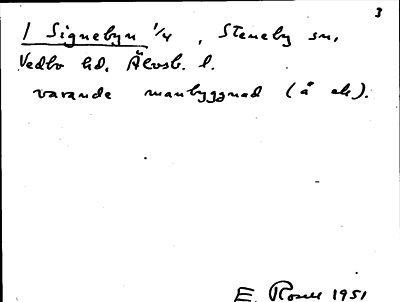 3
1 Signebyn 1/4, Steneby sn,
Vedbo hd, Älvsb. l.
varande manbyggnad (å ek).
E. Rosell 1951